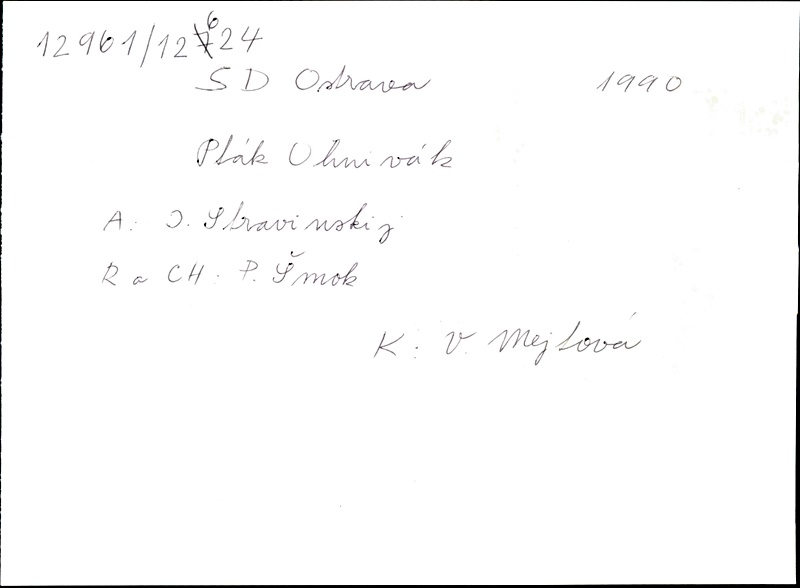 12961/12624
SD Ostrava 1990
Pták Ohnivák
A: I. Stravinskij
R a CH: P. Šmok
K: V. Mejtová